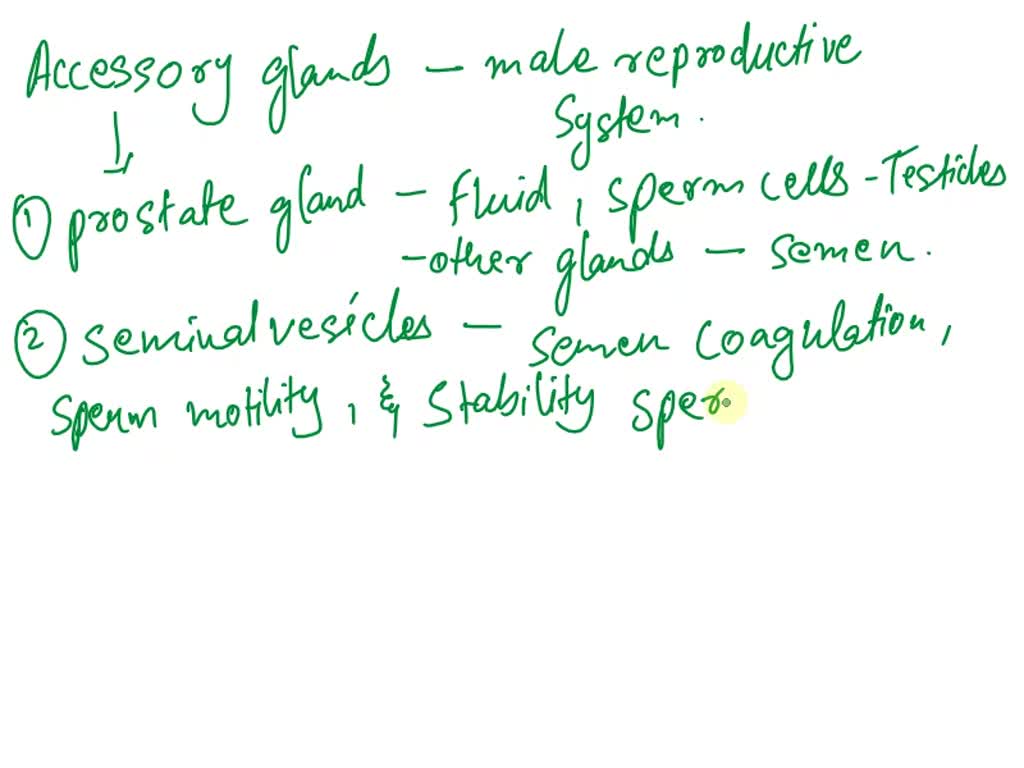 Accessory glands - male reproductive
System.
① prostate gland - fluid, sperm cells - Testicles
- other glands - semen.
② seminal vesicles - semen coagulation,
sperm motility, & stability sper